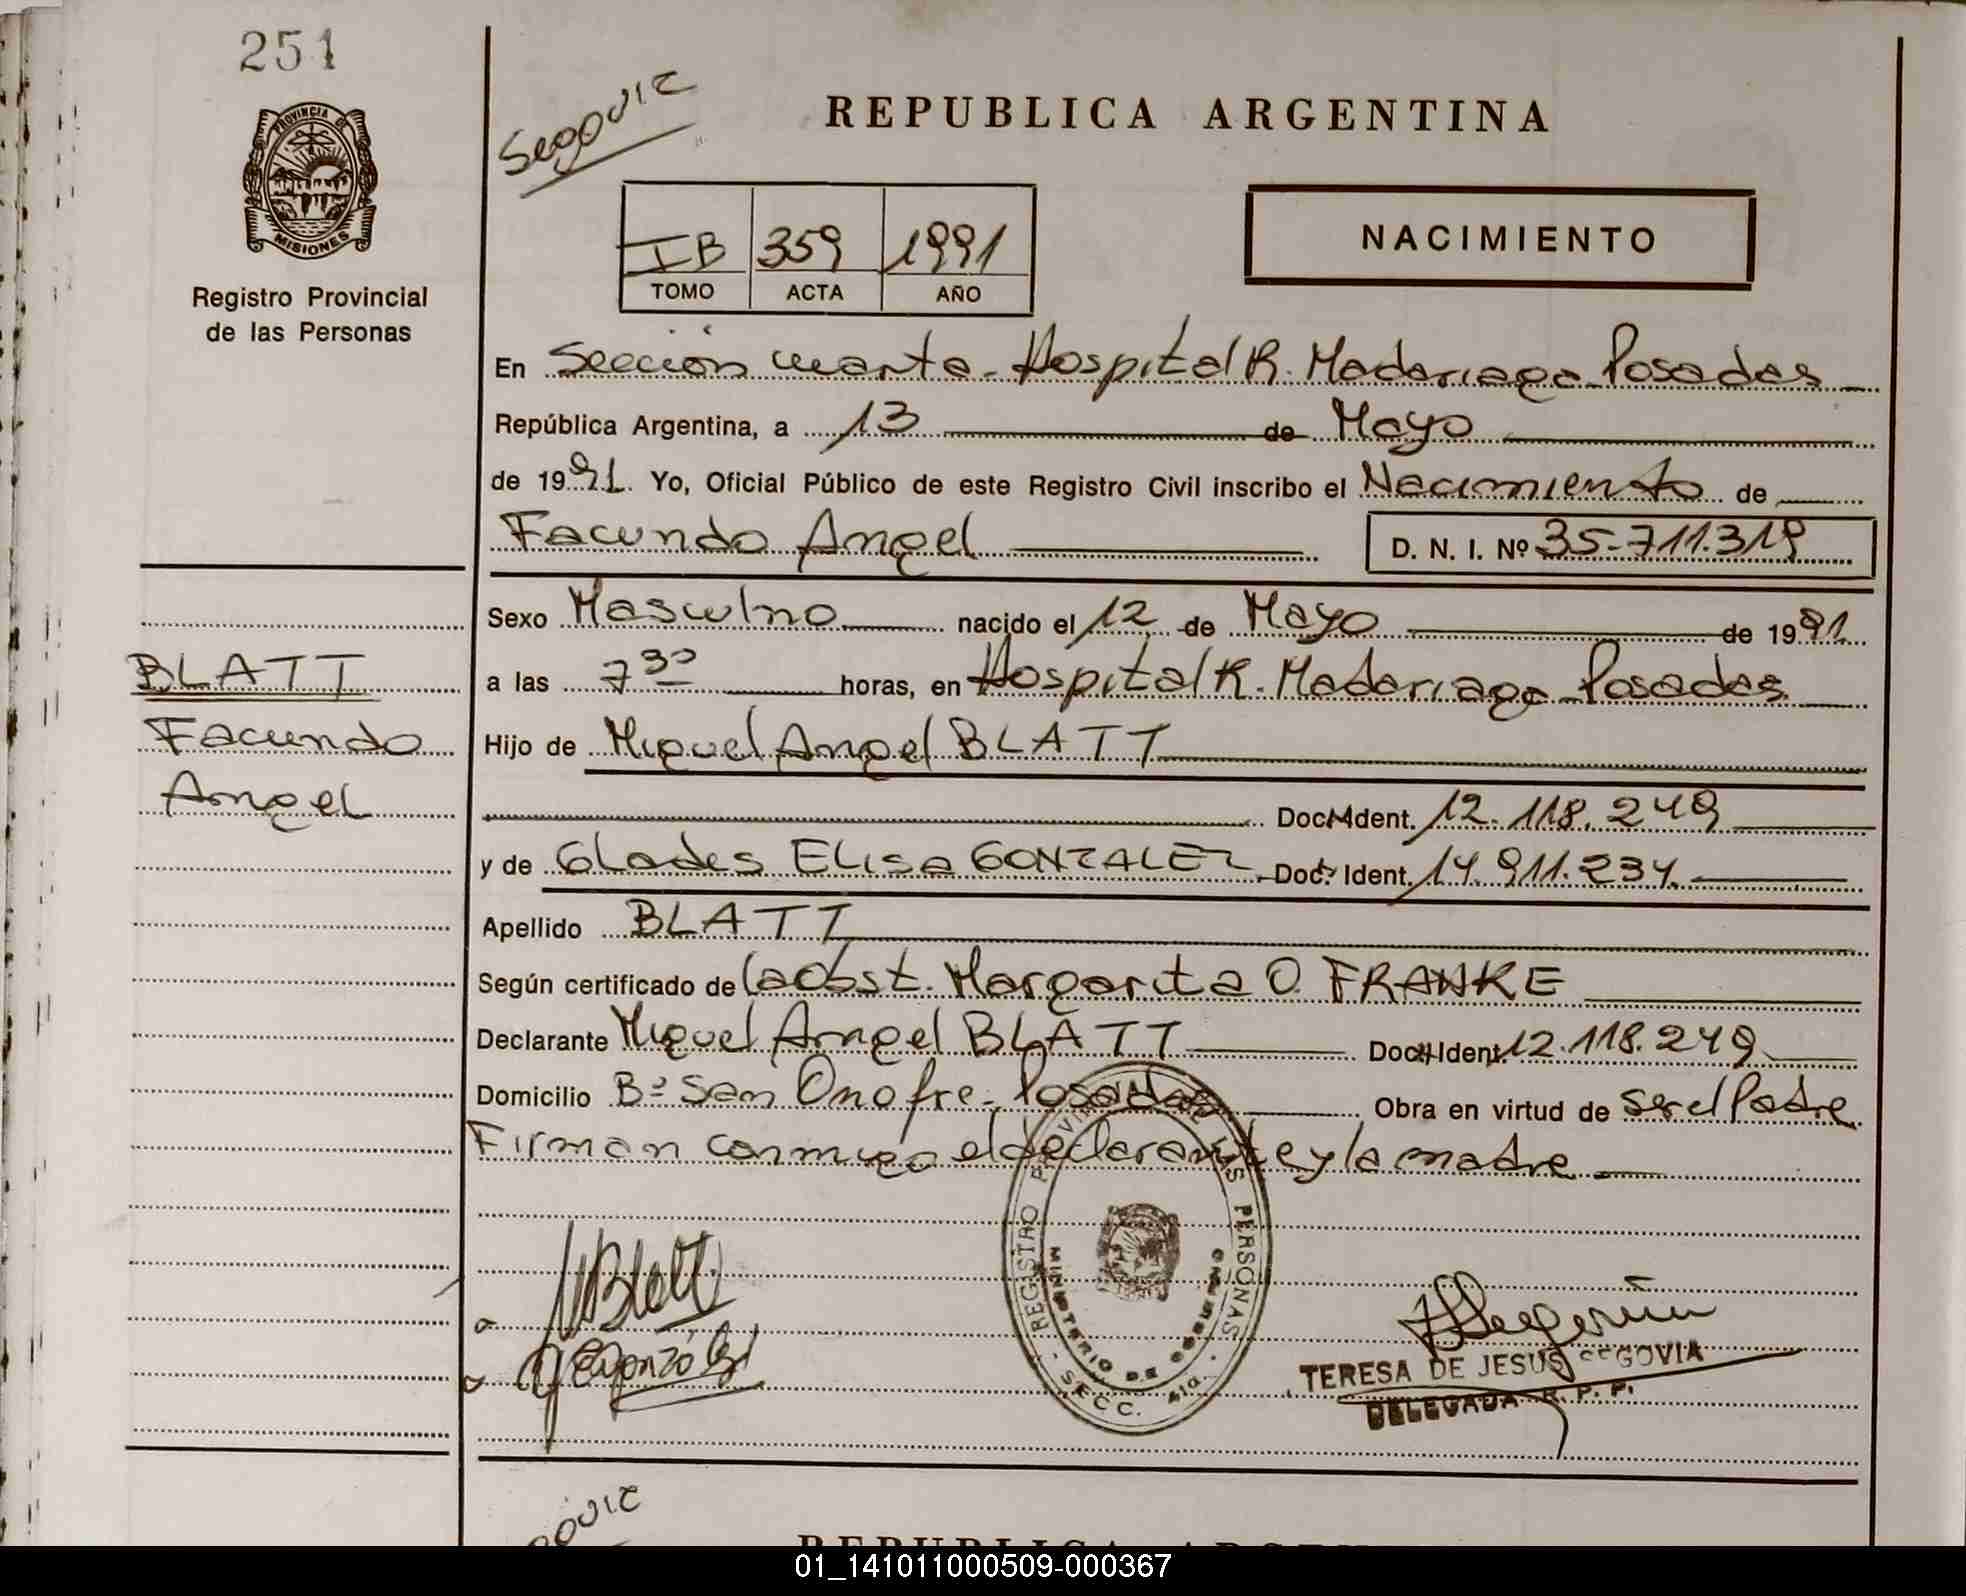 251
PROVINCIA DE
MISIONES
Registro Provincial
de las Personas
BLATT
Facundo
Angel
Segovia
REPUBLICA ARGENTINA
IB 359 1991
TOMO ACTA AÑO
NACIMIENTO
En Sección cuarta - Hospital R. Madariaga Posadas
República Argentina, a 13 de Mayo
de 1991. Yo, Oficial Público de este Registro Civil inscribo el Nacimiento de
Facundo Angel D. N. I. Nº 35.711.319
Sexo Masculno nacido el 12 de Mayo de 1991
a las 7 30 horas, en Hospital R. Madariaga Posadas
Hijo de Miguel Angel BLATT
Doc. Ident. 12.118.249
y de Glades ELisa GONZALEZ Doc. Ident. 14.911.234
Apellido BLATT
Según certificado de la Obst. Margarita O. FRANKE
Declarante Miguel Angel BLATT Doc. Ident. 12.118.249
Domicilio Bº San Onofre - Posadas Obra en virtud de ser el Padre
Firman conmigo el declarante y la madre
REGISTRO PROVINCIAL DE LAS PERSONAS
MINISTERIO DE GOBIERNO
SECC. 4ta.
MBlatt
GEGonzález
TERESA DE JESUS SEGOVIA
DELEGADA R. P. P.
REPUBLICA ARGENTINA
01_141011000509-000367